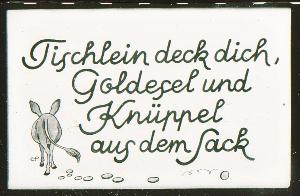 Tischlein deck dich,
Goldesel und
Knüppel
aus dem Sack